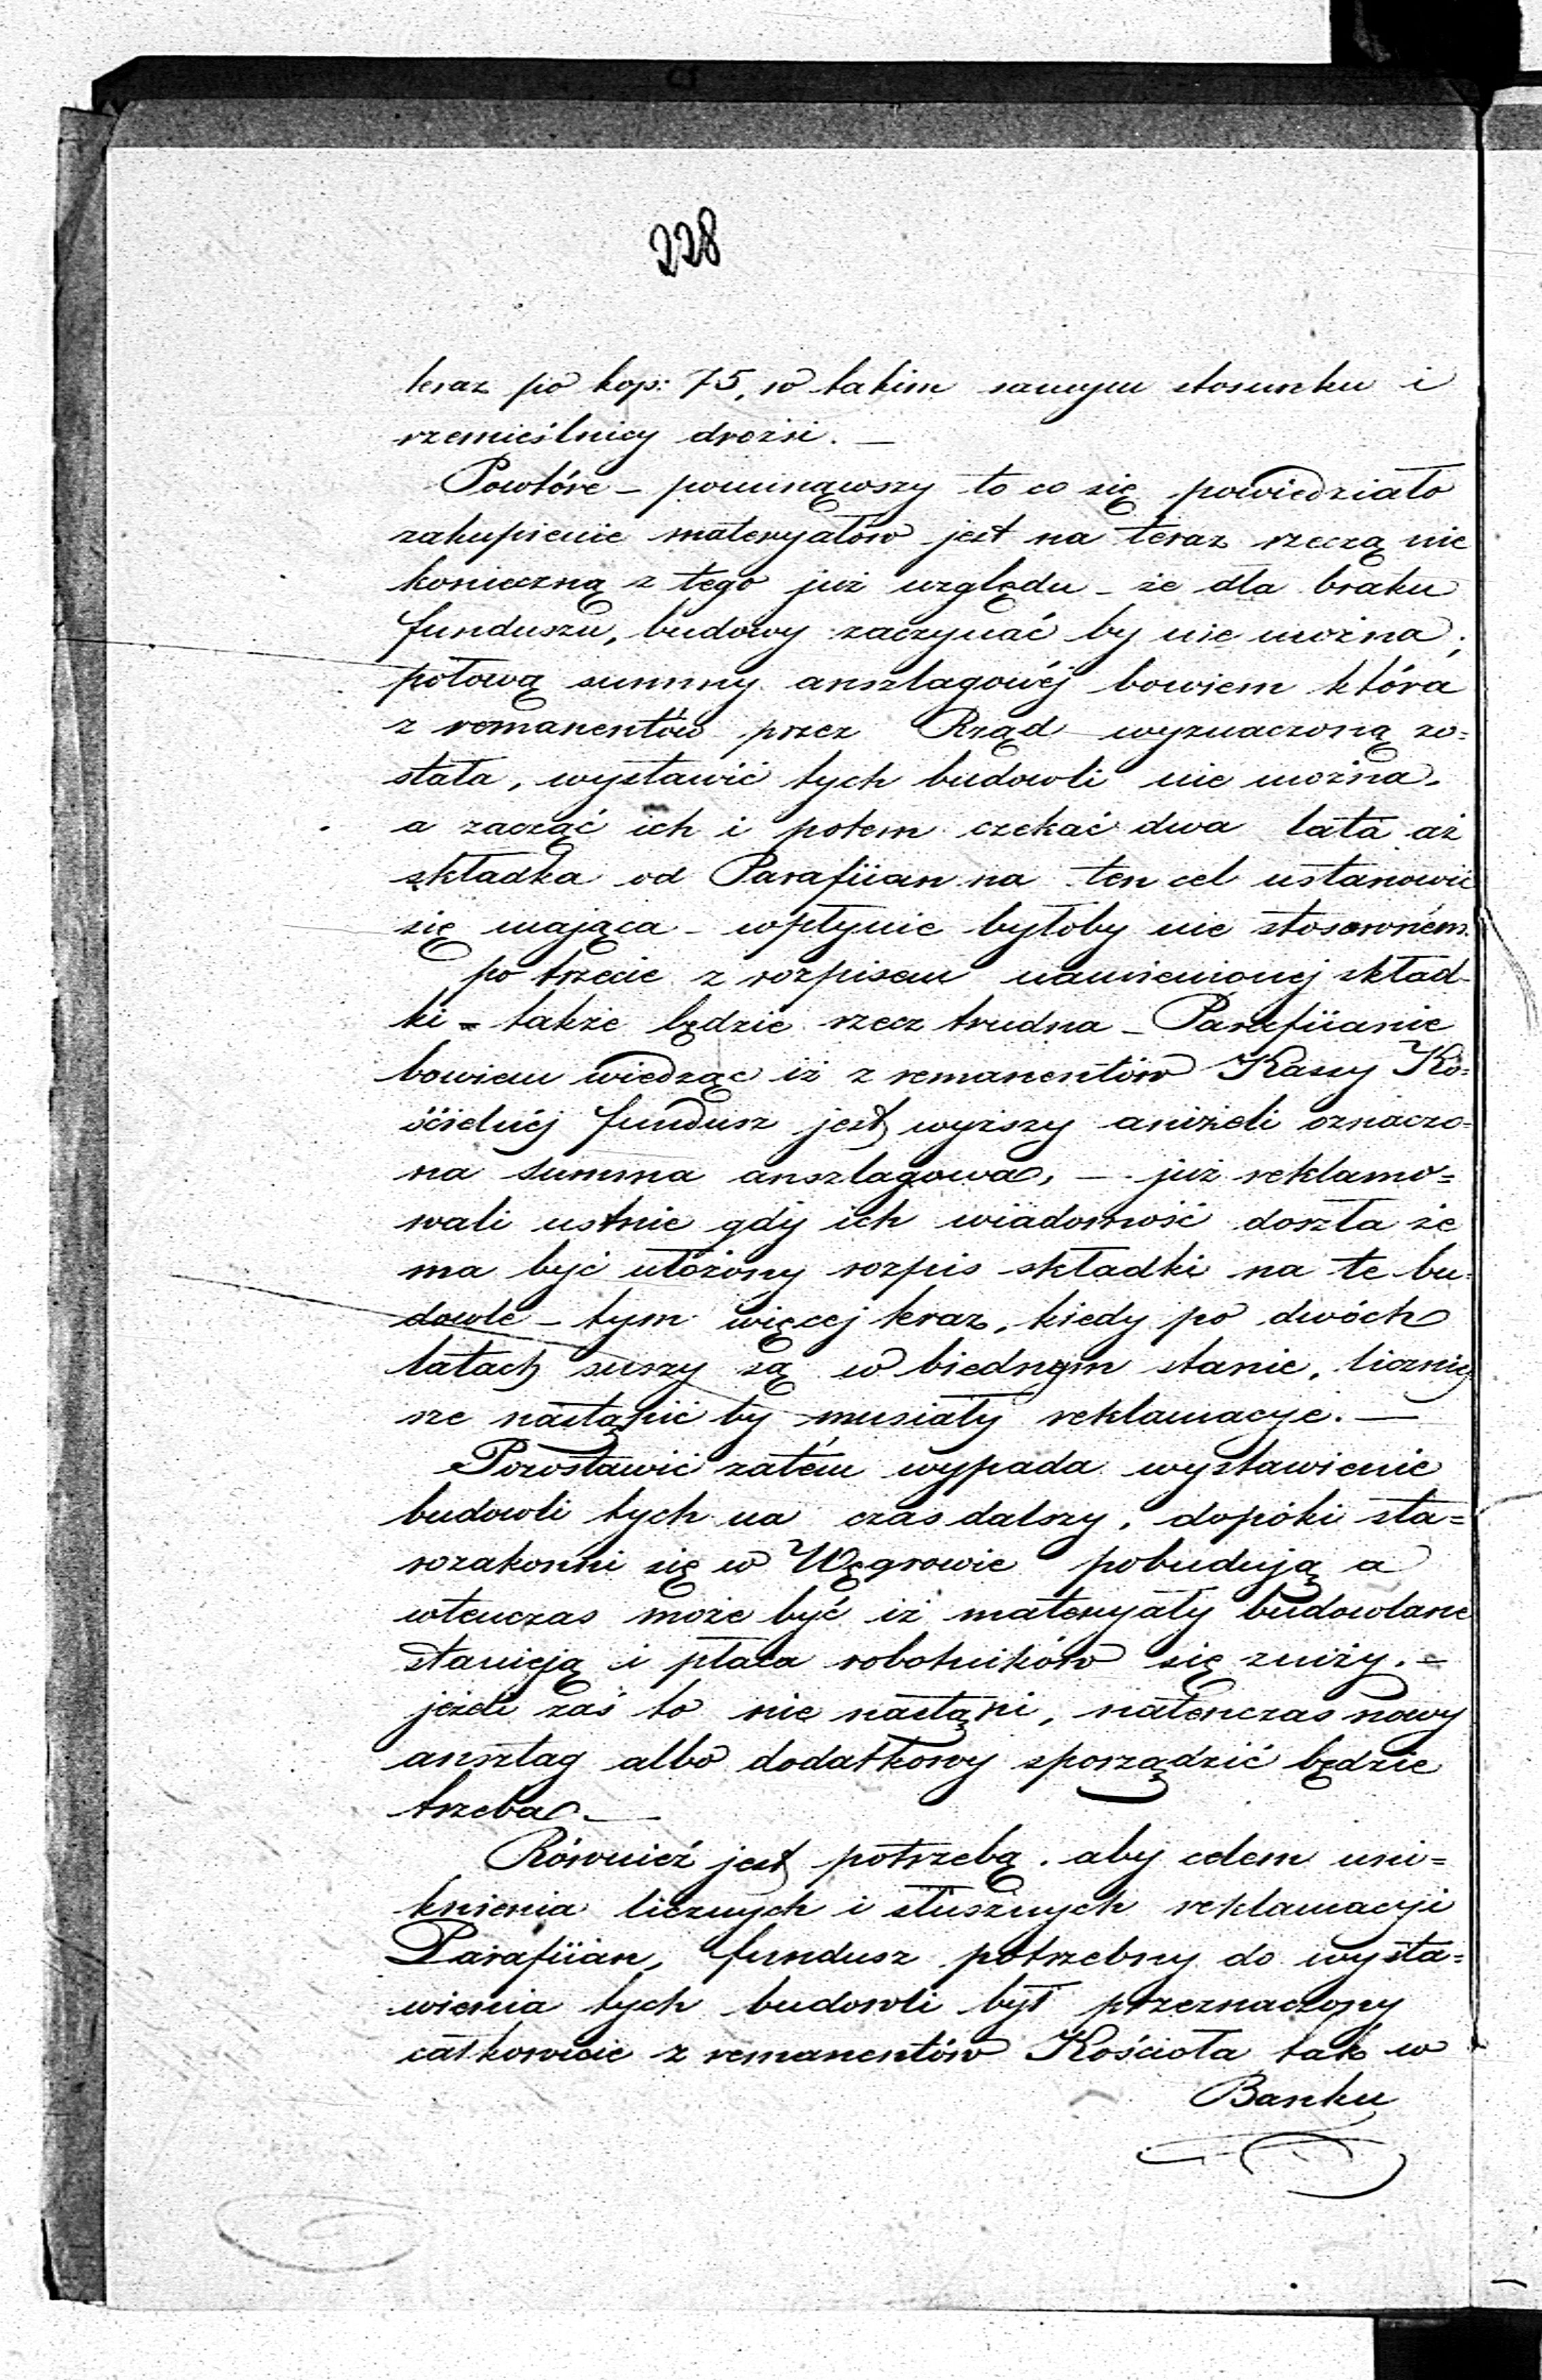 228
teraz po kop: 75, w takim samym stosunku i
rzemieślnicy drożsi. —
Powtóre – pominąwszy to co się powiedziało
zakupienie materyałów jest na teraz rzeczą nie
konieczną z tego już względu – że dla braku
funduszu, budowy zaczynać by nie można;
połową summy anszlagowéj bowiem która
z remanentów przez Rząd wyznaczoną zo=
stała, wystawić tych budowli nie można,
a zacząć ich i potem czekać dwa lata aż
składka od Parafiian na ten cel ustanowić
się mająca – wpłynie byłoby nie stosowném.
po trzecie z rozpisem namienionej skład-
ki – także będzie rzecz trudna – Parafiianie
bowiem wiedząc iż z remanentów Kassy Ko=
ścielnéj fundusz jest wyższy aniżeli oznaczo=
na summa anszlagowa, — już reklamo=
wali ustnie gdy ich wiadomość doszła że
ma być ułożony rozpis składki na te bu=
dowle – tym więcej teraz, kiedy po dwóch
latach suszy są w biednym stanie, liczniej
sze nastąpić by musiały reklamacye. —
Pozostawić zatém wypada wystawienie
budowli tych na czas dalszy, dopóki sta=
rozakonni się w Węgrowie pobudują a
wtenczas może być iż materyały budowlane
stanieją i płaca robotników się zniży. –
jeżeli zaś to nie nastąpi, natenczas nowy
anszlag albo dodatkowy sporządzić będzie
trzeba. —
Również jest potrzebą, aby celem uni=
knienia licznych i słusznych reklamacyi
Parafiian, fundusz potrzebny do wysta=
wienia tych budowli był przeznaczony
całkowicie z remanentów Kościoła tak w
Banku